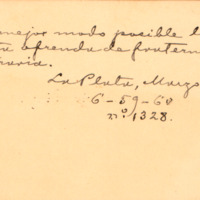 mejor modo posible l
ta ofrenda de fratern
naria.
La Plata, Marzo
6-59-60
nº 1328.